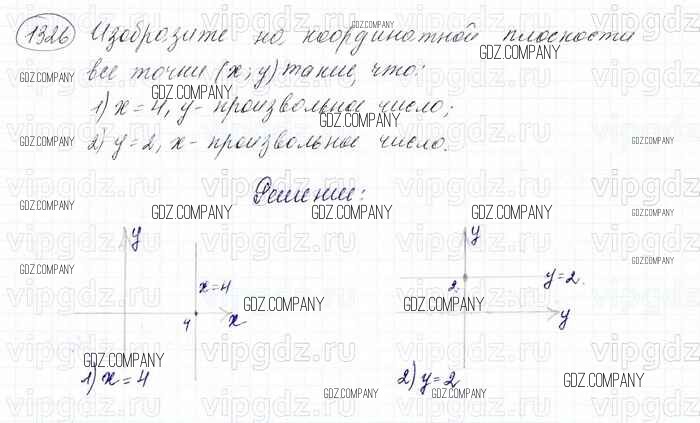 1326 Изобразите на координатной плоскости
все точки (x; y) такие, что:
1) x = 4, y - произвольное число;
2) y = 2, x - произвольное число.
Решение:
y
x = 4
4
x
1) x = 4
y
2
y = 2.
y
2) y = 2
GDZ.COMPANY
GDZ.COMPANY
GDZ.COMPANY
GDZ.COMPANY
GDZ.COMPANY
GDZ.COMPANY
GDZ.COMPANY
GDZ.COMPANY
GDZ.COMPANY
GDZ.COMPANY
GDZ.COMPANY
GDZ.COMPANY
GDZ.COMPANY
GDZ.COMPANY
GDZ.COMPANY
GDZ.COMPANY
GDZ.COMPANY
GDZ.COMPANY
GDZ.COMPANY
GDZ.COMPANY
vipgdz.ru vipgdz.ru vipgdz.ru vipgdz.ru